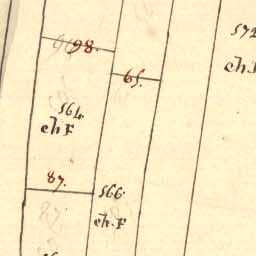 572
98.
ch.F
65.
564
ch F
87.
566
ch.F